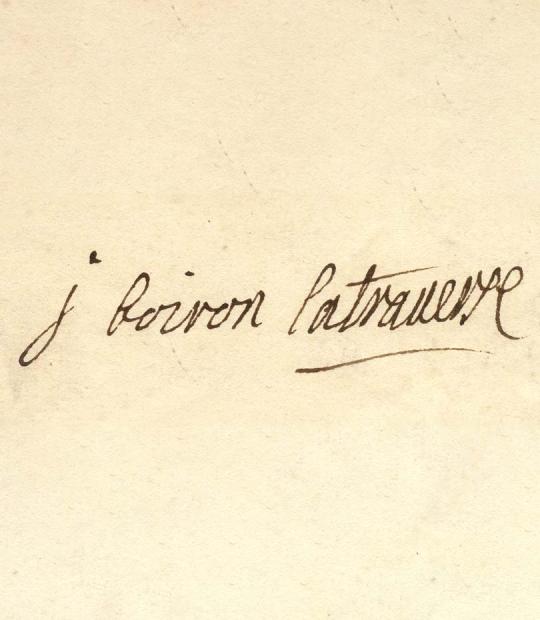 j boiron latrauerse